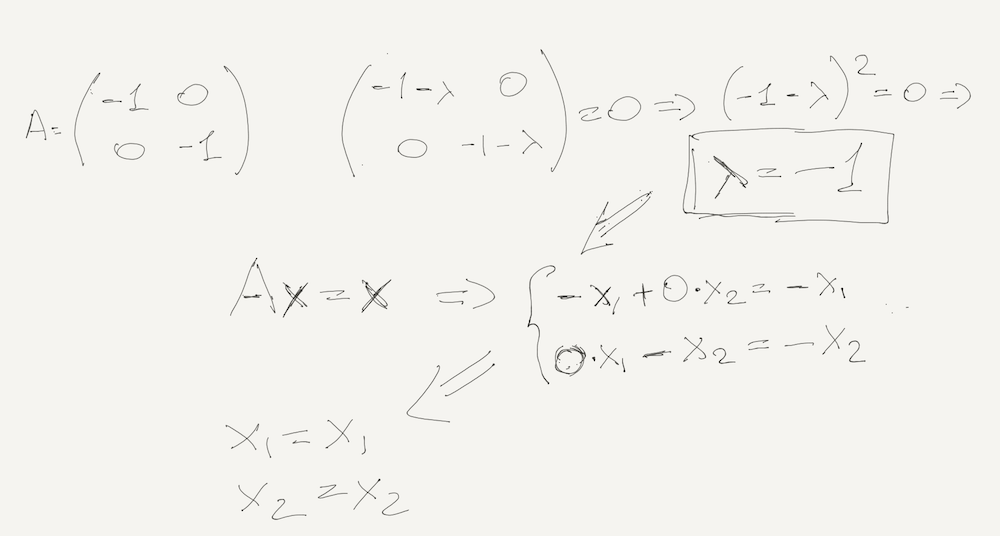 A = ( -1 0 ; 0 -1 ) ( -1-λ 0 ; 0 -1-λ ) = 0 ⇒ (-1-λ)² = 0 ⇒
λ = -1
Ax = x ⇒ { -x₁ + 0·x₂ = -x₁
0·x₁ - x₂ = -x₂
x₁ = x₁
x₂ = x₂